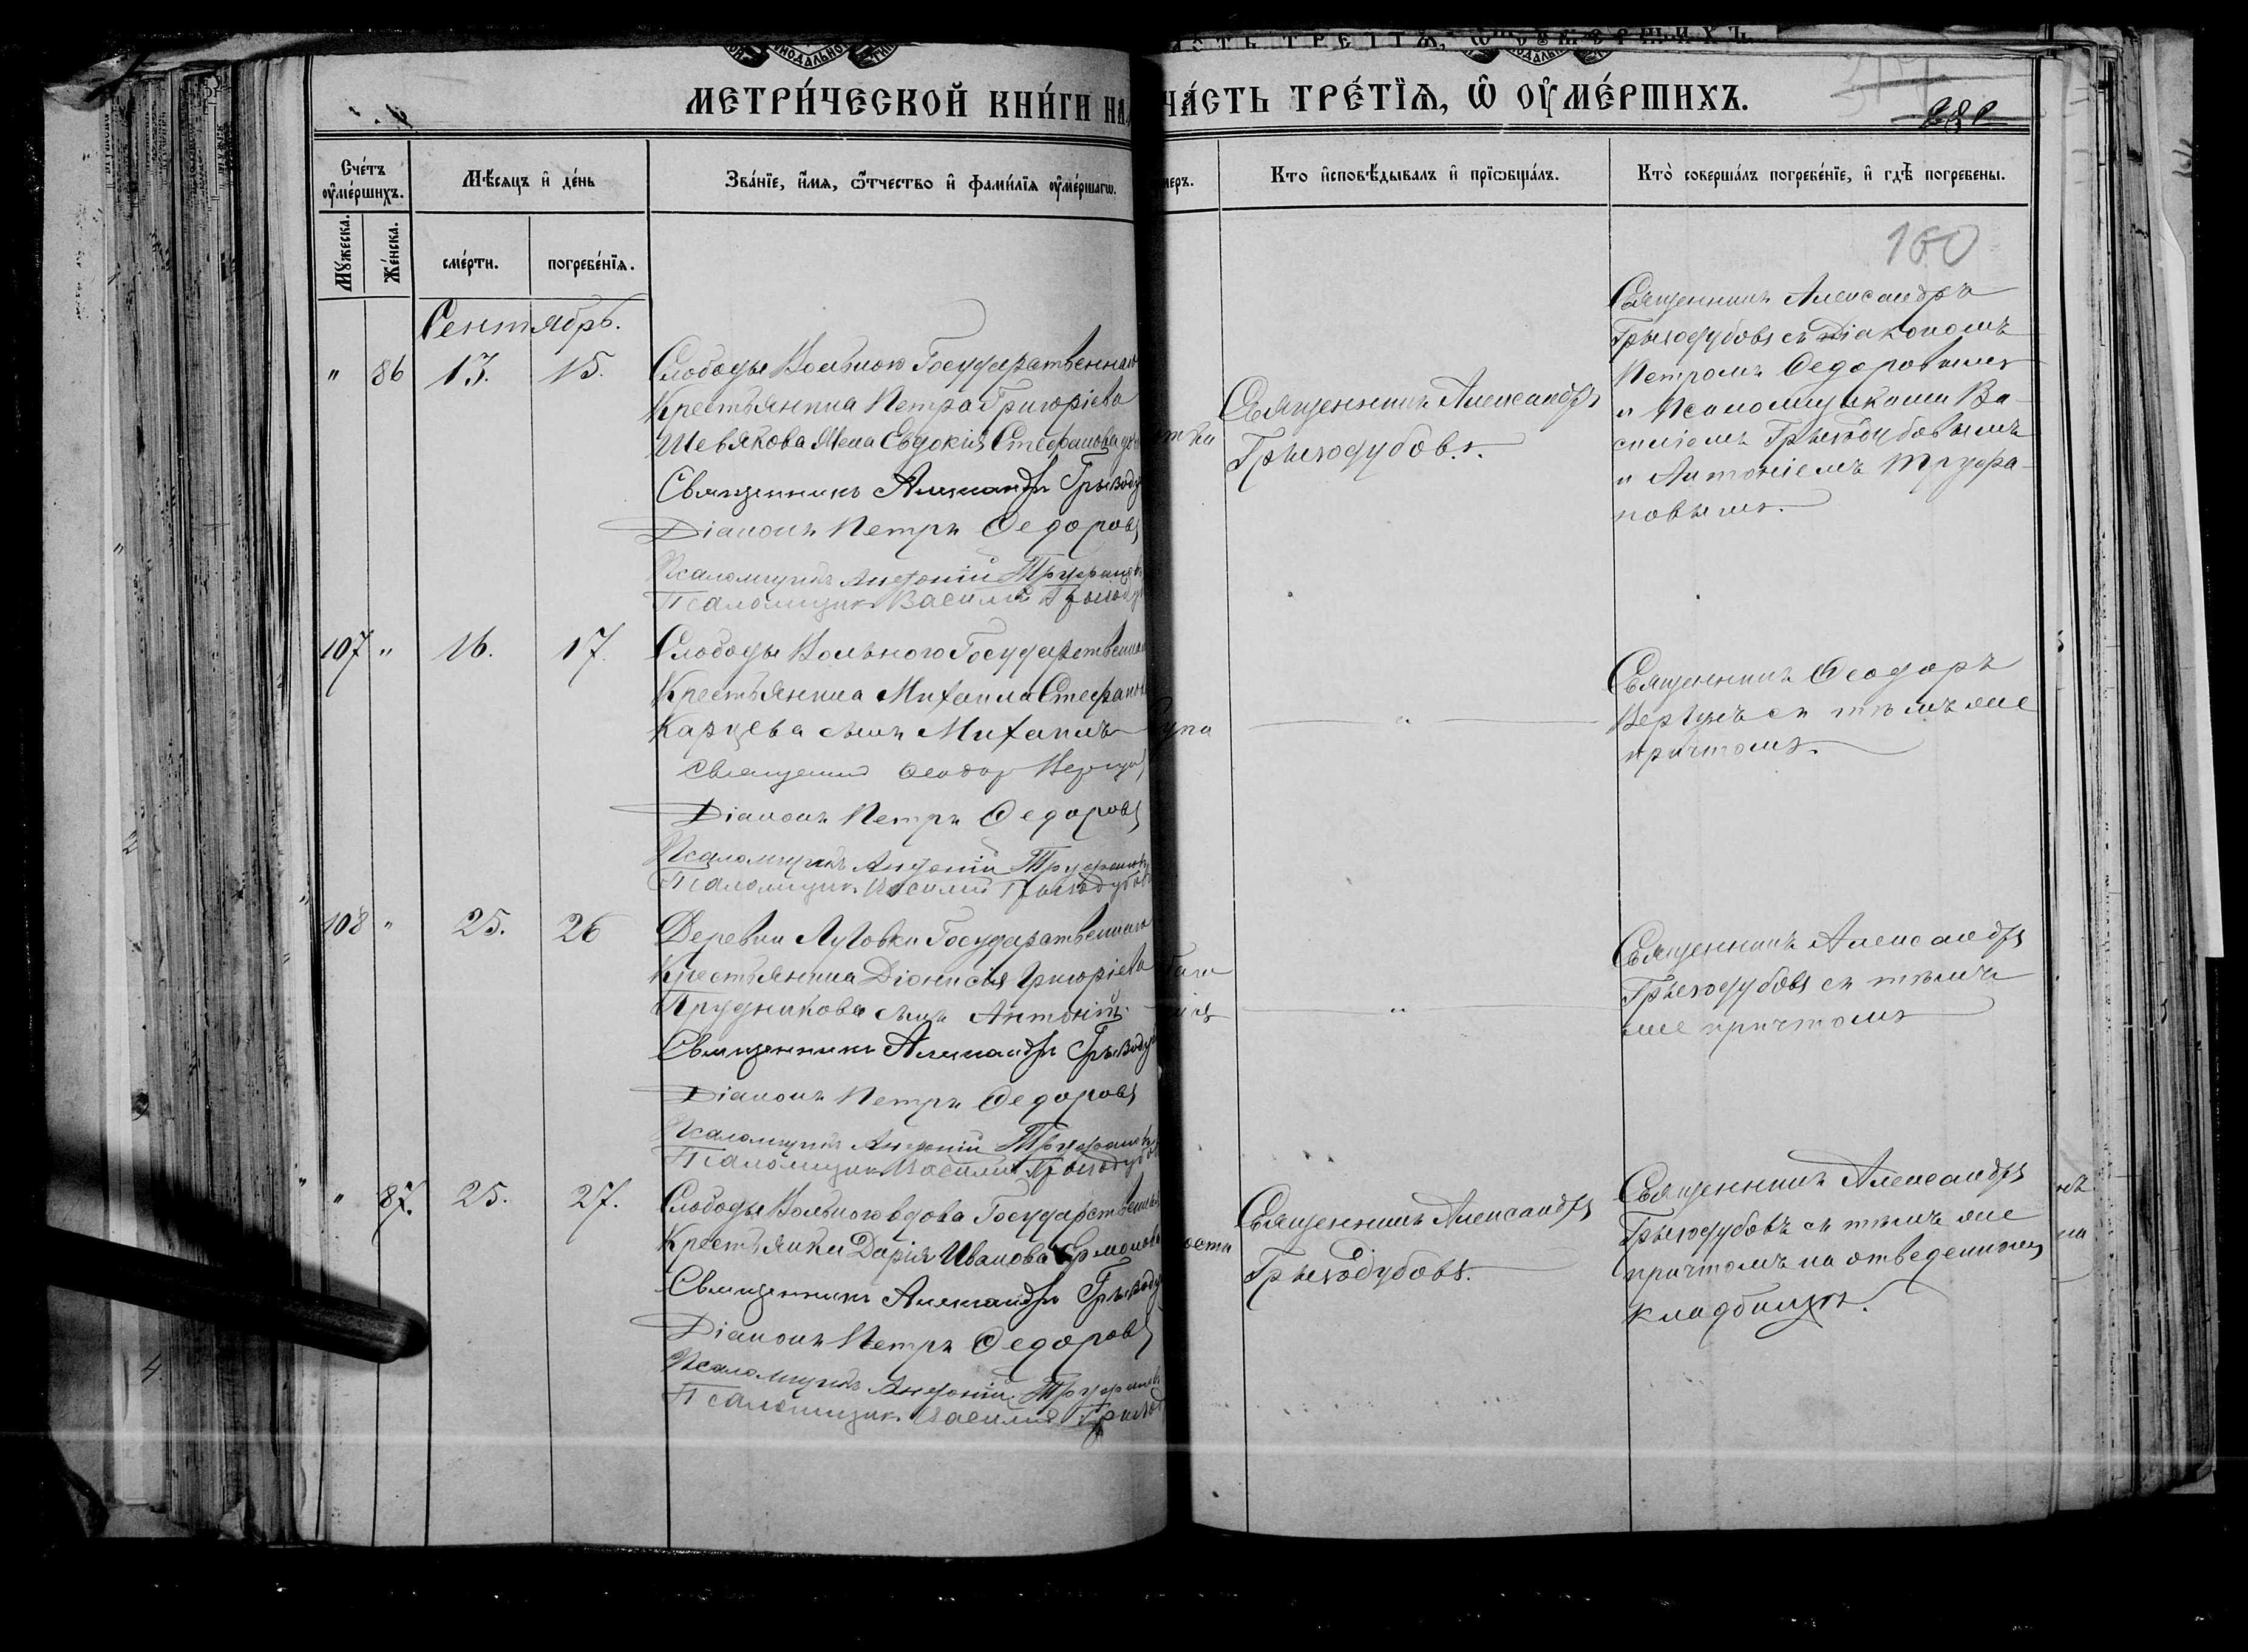 МЕТРИ́ЧЕСКОЙ КНИ́ГИ НА
ЧА́СТЬ ТРЕ́ТЇѦ, Ѡ ОУМЕ́РШИХЪ.
Сче́тъ оуме́ршихъ.
Мѣсяцъ и де́нь
Зва́нїе, и́мѧ, ѻтчество и фами́лїѧ оуме́ршагѡ.
меръ.
Кто и҆сповѣ́дывалъ и҆ прїѡбща́лъ.
Кто̀ соверша́лъ погребе́нїе, и҆ гдѣ̀ погребены.
Мꙋ́жеска.
Же́нска.
сме́рти.
погребе́нїѧ.
160
Сентябрь.
" 86 13. 15.
Слободы Вольного Государственнаго
Крестьянина Петра Григоріева
Шевякова жена Евдокія Стефанова
Священникъ Александръ
Діаконъ Петръ Федоровъ
Псаломщикъ Антоній Труфановъ
Псаломщикъ Василий
Священникъ Александръ
Грыходубовъ.
Священникъ Александръ
Грыходубовъ съ Діакономъ
Петромъ Федоровымъ
и Псаломщиками Ва-
силіемъ Грыходубовымъ
и Антоніемъ Труфа-
новымъ.
107 " 16. 17.
Слободы Вольного Государственнаго
Крестьянина Михаила Стефанова
Карцева сынъ Михаилъ
Священник Феодор
Діаконъ Петръ Федоровъ
Псаломщикъ Антоній Труфановъ
Псаломщик Василий Грыходубовъ
"
Священникъ Феодоръ
съ тѣмъ же
причтомъ.
108 " 25. 26
Деревни Луговки Государственнаго
Крестьянина Діонисія Григоріева
Прудникова сынъ Антоній.
Священникъ Александръ
Діаконъ Петръ Федоровъ
Псаломщикъ Антоній Труфановъ
Псаломщик Василий
"
Священникъ Александръ
Грыходубовъ съ тѣмъ
же причтомъ
" 87. 25. 27.
Слободы Вольного вдова Государственной
Крестьянки Дарія Иванова Ермолова
Священникъ Александръ
Діаконъ Петръ Федоровъ
Псаломщикъ Антоній Труфановъ
Псаломщик Василий
Священникъ Александръ
Грыходубовъ.
Священникъ Александръ
Грыходубовъ съ тѣмъ же
причтомъ на отведенномъ
кладбищѣ.